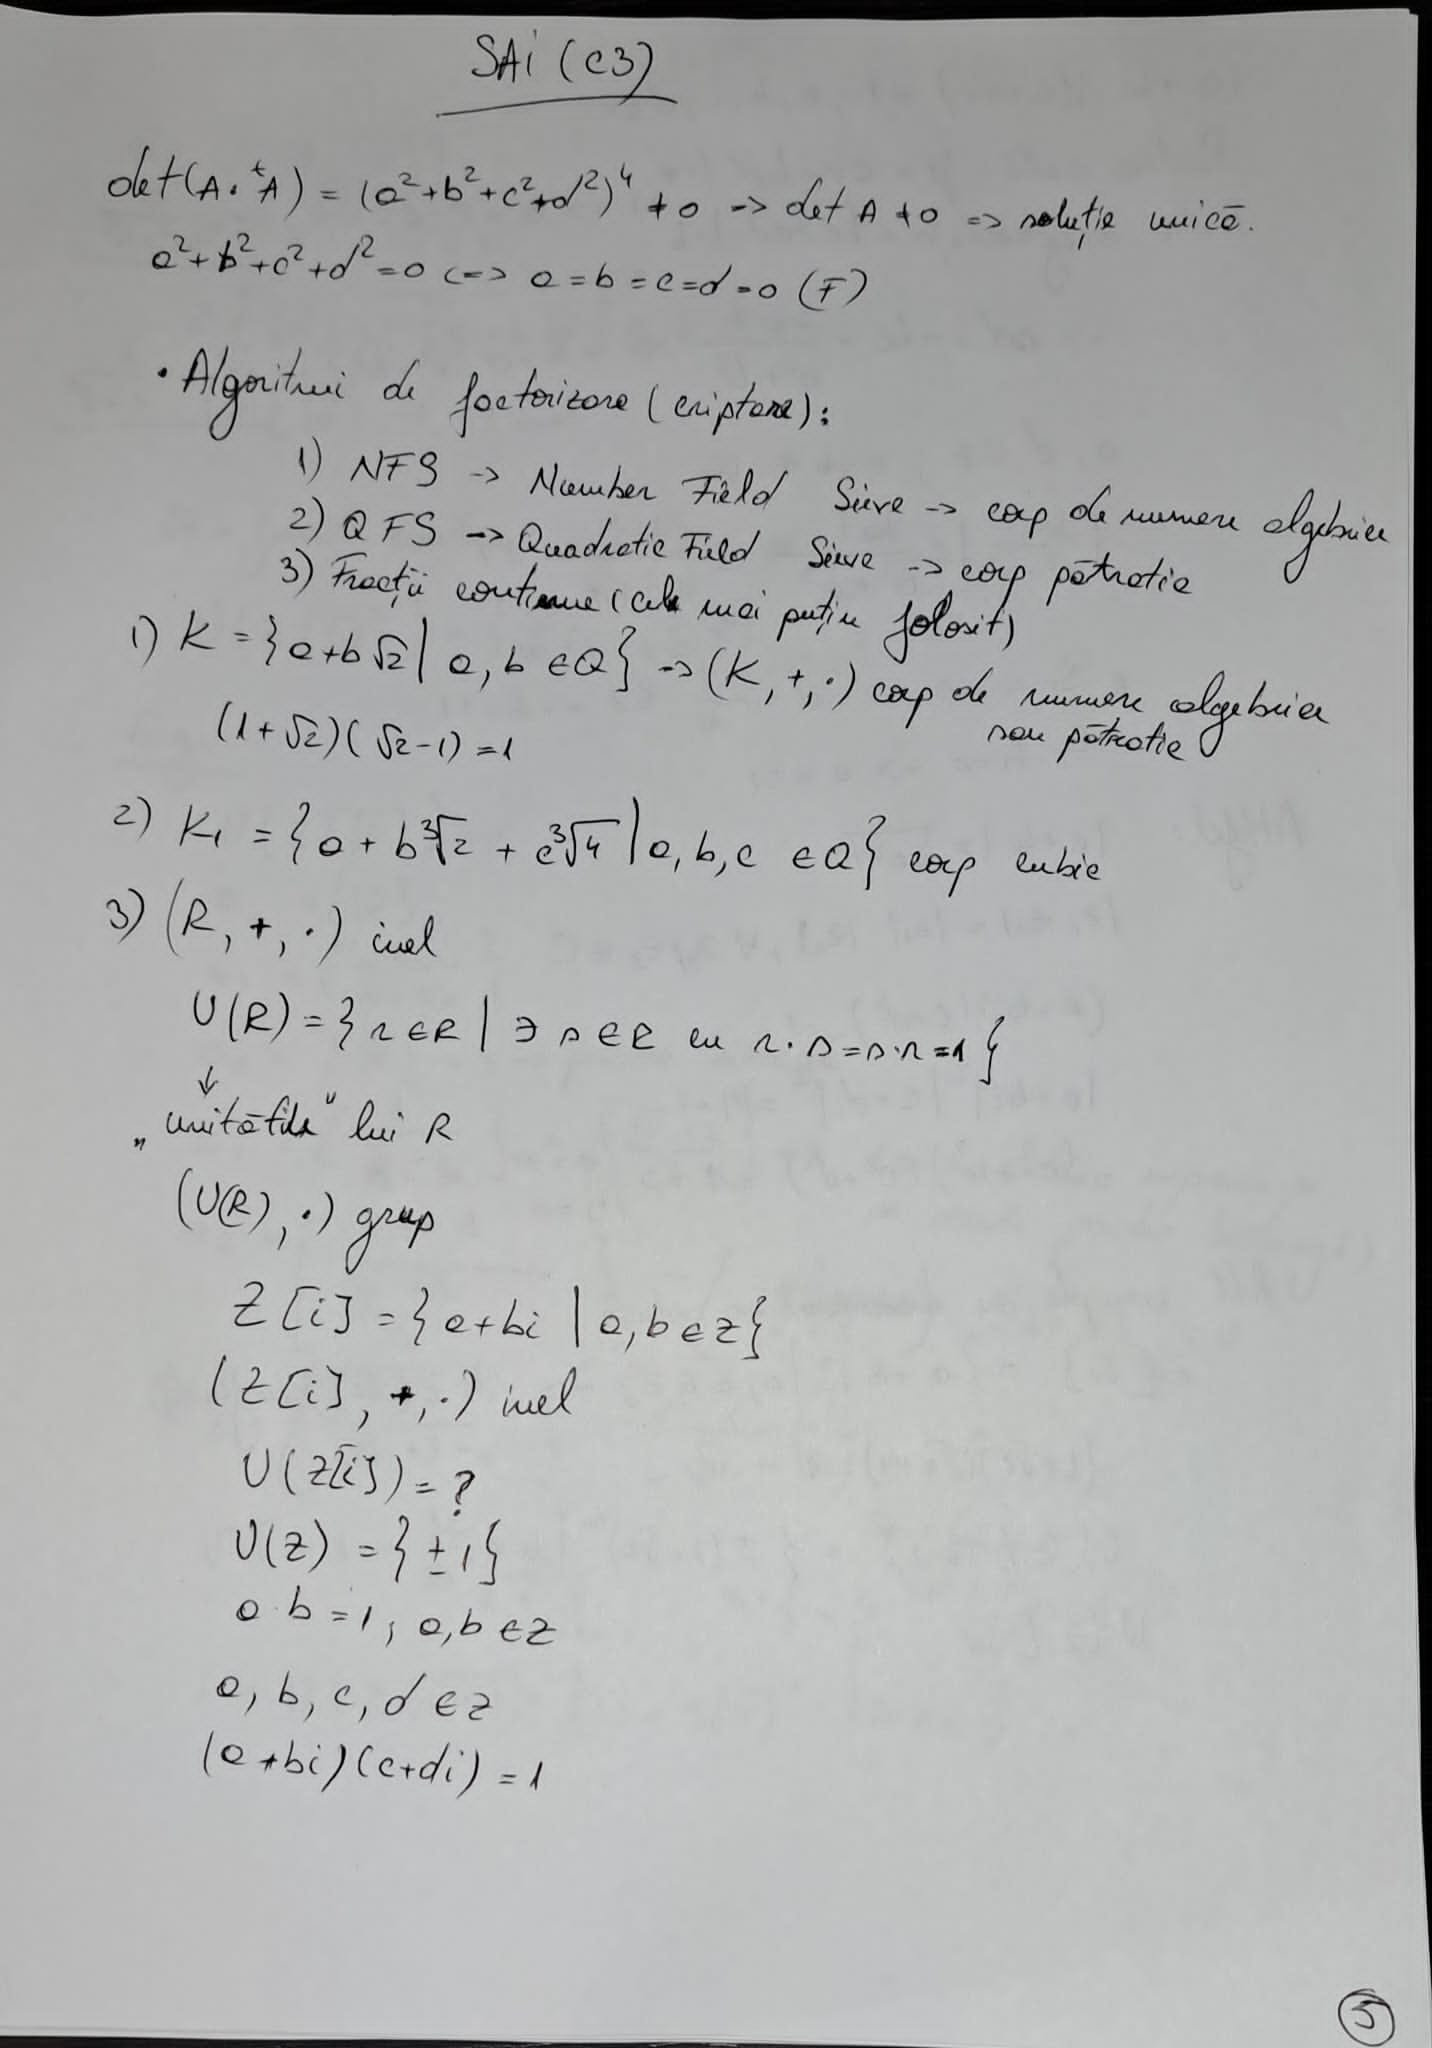 SAI (C3)
det(A·ᵗA) = (a²+b²+c²+d²)⁴ ≠ 0 -> det A ≠ 0 => soluție unică.
a²+b²+c²+d²=0 <=> a=b=c=d=0 (F)
• Algoritmi de factorizare (criptare):
1) NFS -> Number Field Sieve -> corp de numere algebrice
2) QFS -> Quadratic Field Sieve -> corp pătratic
3) Fracții continue (cel mai puțin folosit)
1) K = {a+b√2 | a, b ∈ Q} -> (K, +, ·) corp de numere algebrice
sau pătratic
(1+√2)(√2-1)=1
2) K₁ = {a + b∛2 + c∛4 | a, b, c ∈ Q} corp cubic
3) (R, +, ·) inel
U(R) = {r ∈ R | ∃ s ∈ R cu r·s=s·r=1}
↓
„unitățile" lui R
(U(R), ·) grup
Z[i] = {a+bi | a, b ∈ Z}
(Z[i], +, ·) inel
U(Z[i]) = ?
U(Z) = {±1}
a·b=1, a, b ∈ Z
a, b, c, d ∈ Z
(a+bi)(c+di) = 1
5